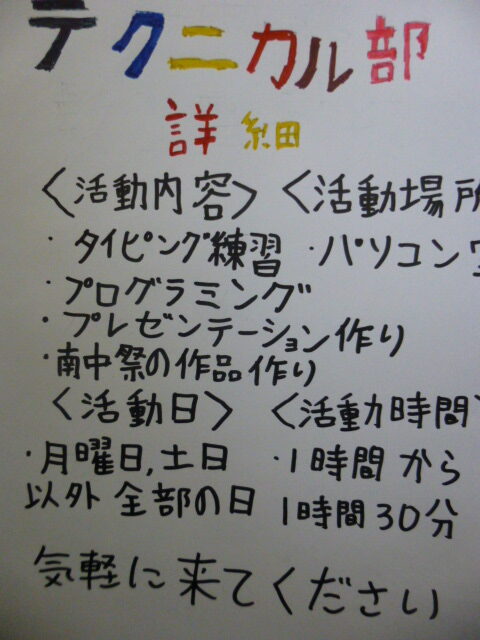 テクニカル部
詳細
〈活動内容〉 〈活動場所
・タイピング練習 ・パソコン
・プログラミング
・プレゼンテーション作り
・南中祭の作品作り
〈活動日〉 〈活動時間
・月曜日,土日 ・1時間から
以外全部の日 1時間30分
気軽に来てください